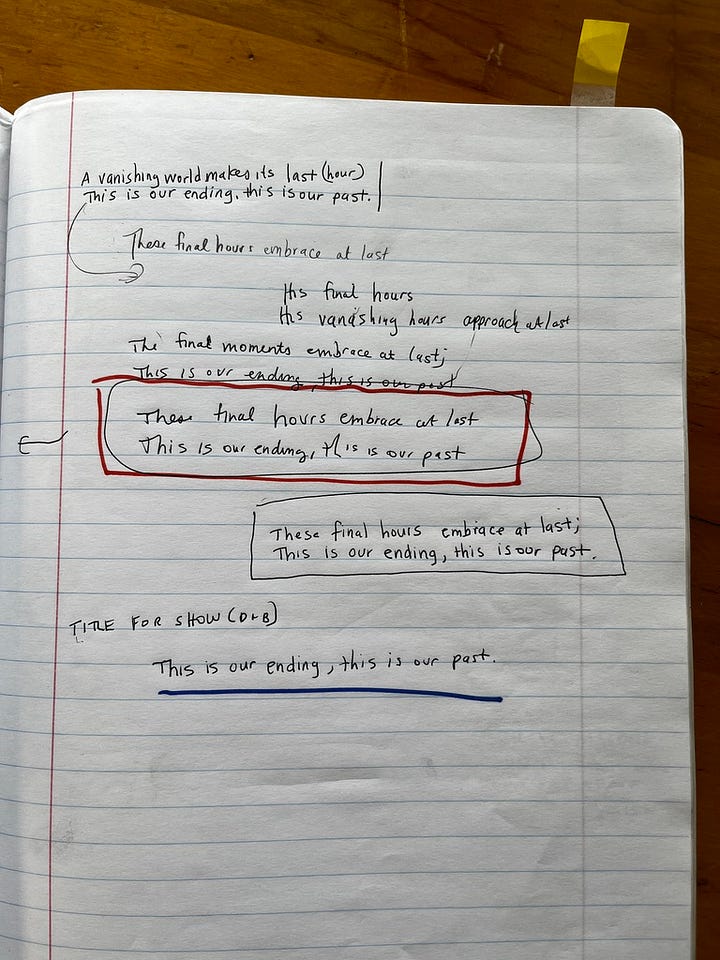 A vanishing world makes its last (hour)
This is our ending, this is our past.
These final hours embrace at last
His final hours
His vanishing hours approach at last
The final moments embrace at last;
This is our ending, this is our past
These final hours embrace at last
This is our ending, this is our past
These final hours embrace at last;
This is our ending, this is our past.
TITLE FOR SHOW (D+B)
This is our ending, this is our past.